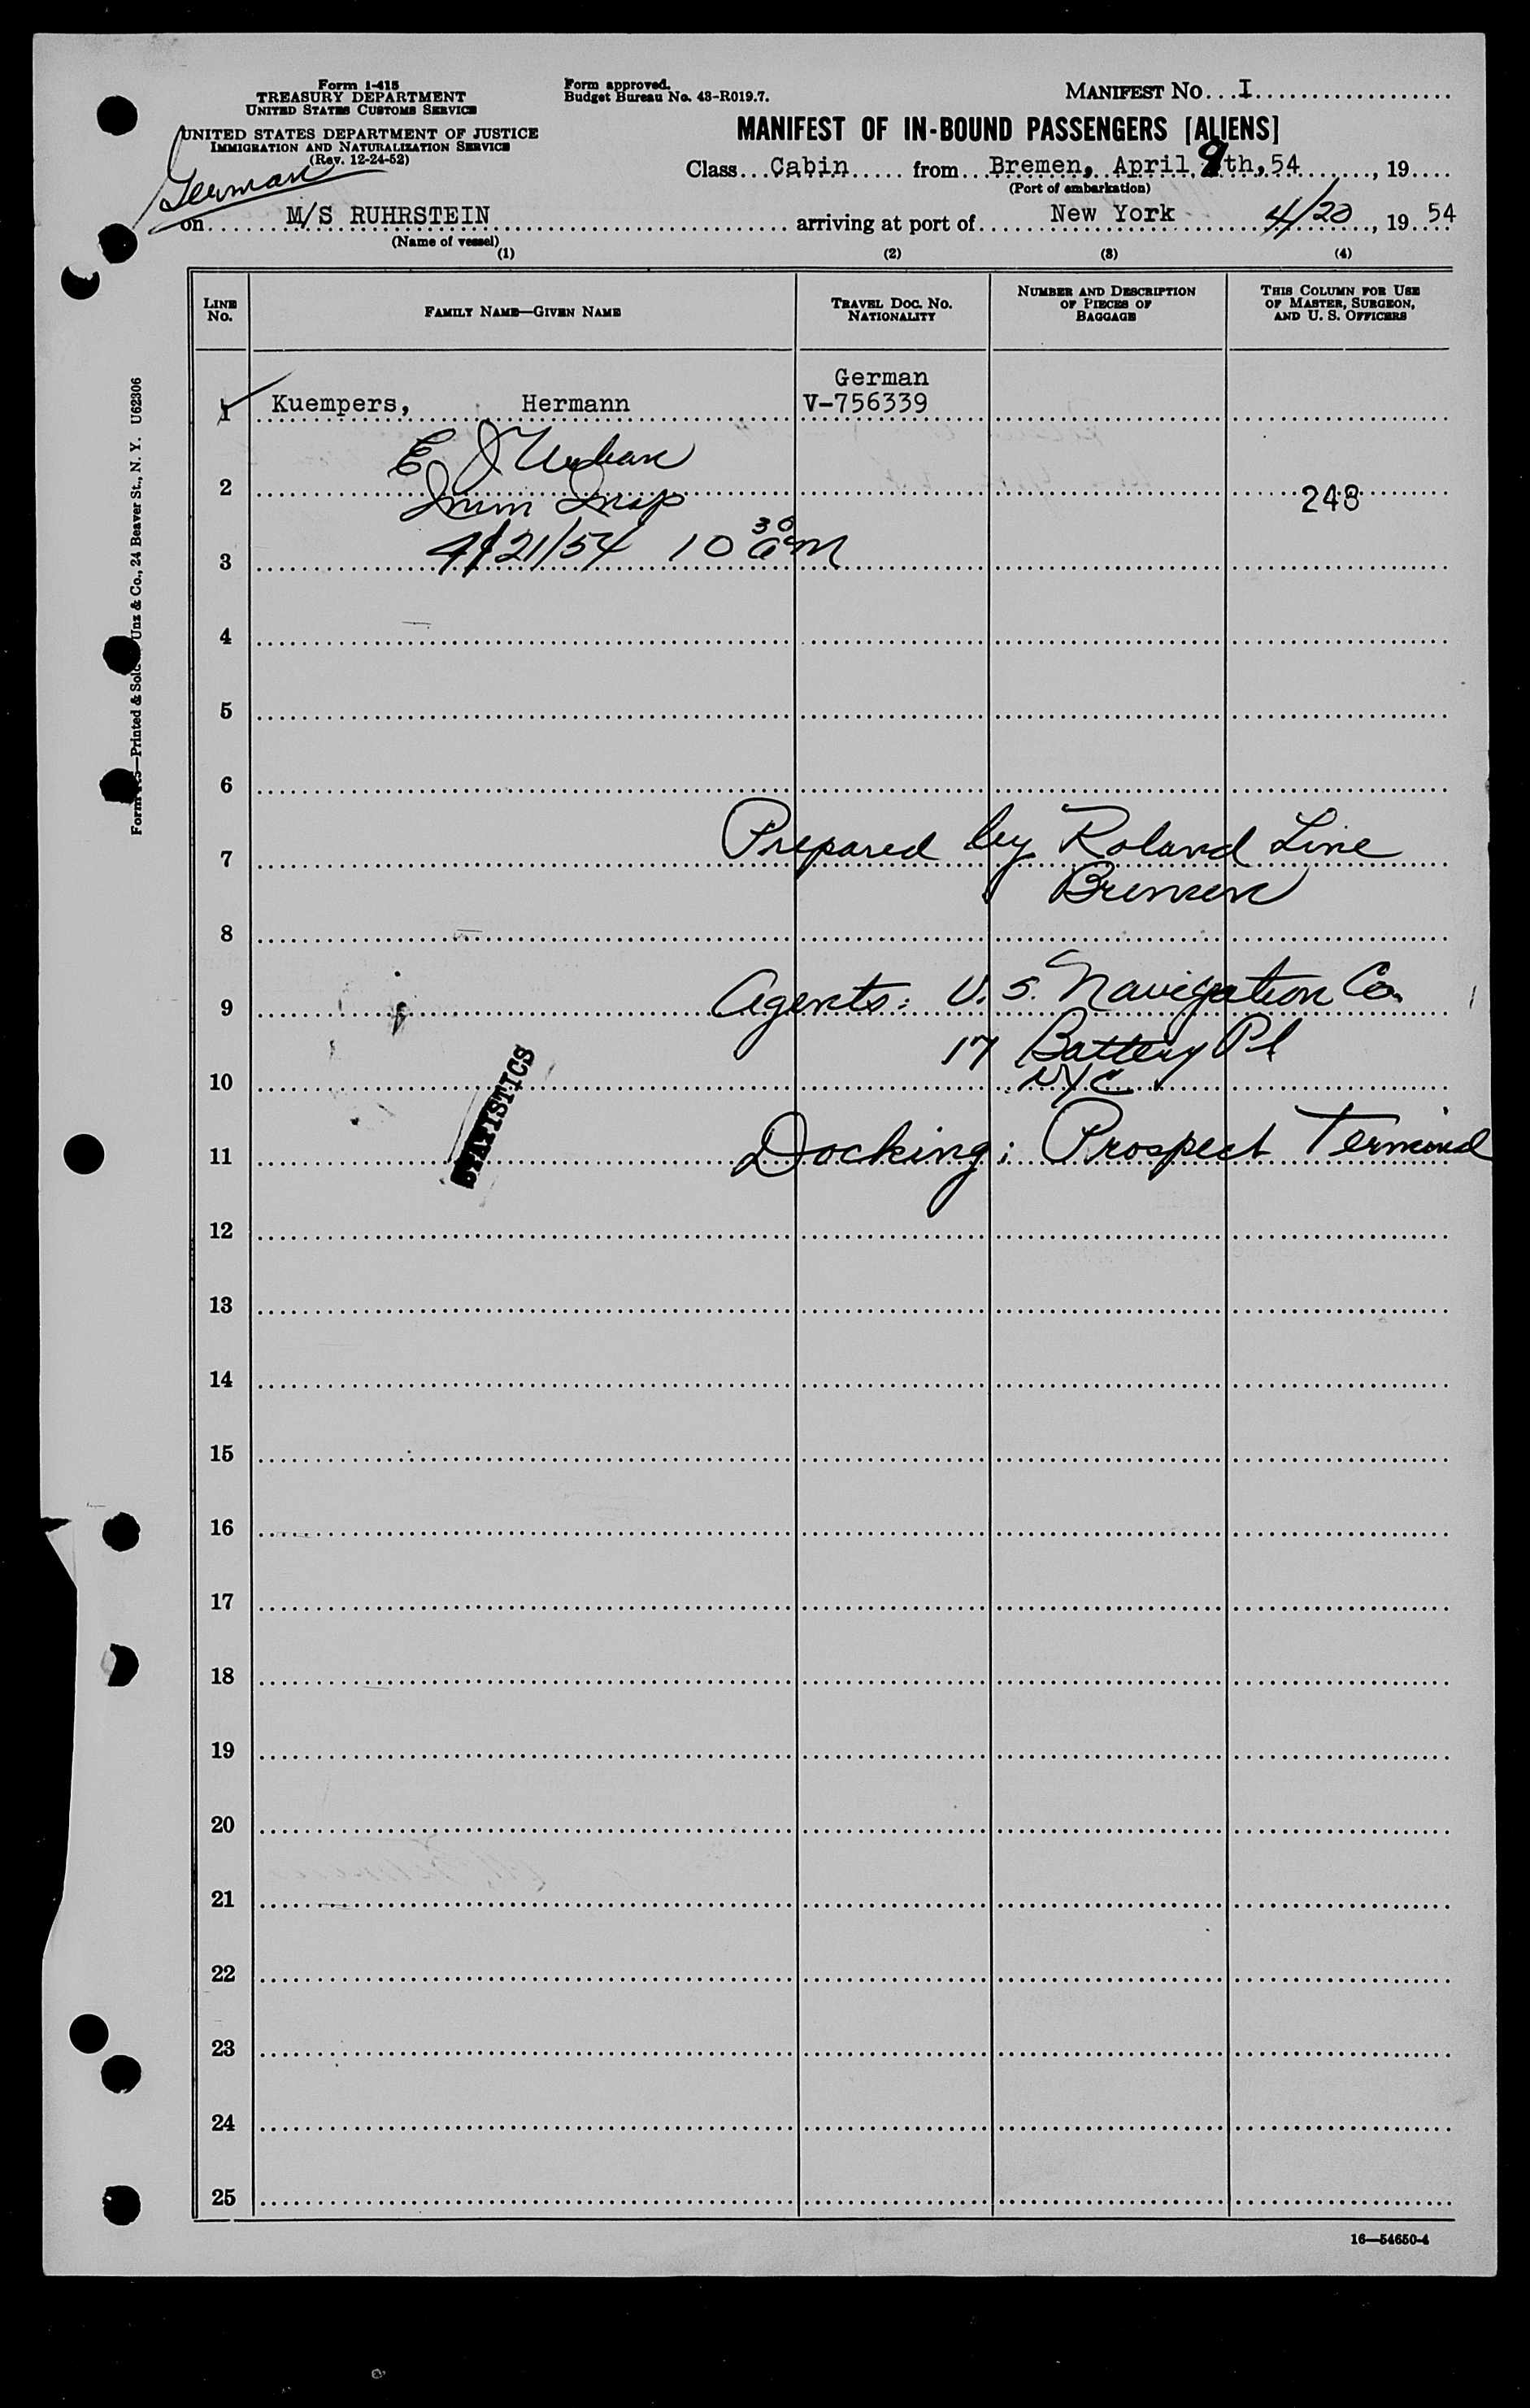 Form I-415
TREASURY DEPARTMENT
UNITED STATES CUSTOMS SERVICE
UNITED STATES DEPARTMENT OF JUSTICE
IMMIGRATION AND NATURALIZATION SERVICE
(Rev. 12-24-52)
Form approved.
Budget Bureau No. 43-R019.7.
MANIFEST NO...I
MANIFEST OF IN-BOUND PASSENGERS [ALIENS]
German
Class...Cabin.....from...Bremen, April 9th, 54......, 19....
(Port of embarkation)
on......M/S RUHRSTEIN......arriving at port of......New York......4/20, 19 54
(Name of vessel)
(1) (2) (3) (4)
LINE NO.
FAMILY NAME—GIVEN NAME
TRAVEL DOC. NO.
NATIONALITY
NUMBER AND DESCRIPTION
OF PIECES OF
BAGGAGE
THIS COLUMN FOR USE
OF MASTER, SURGEON,
AND U. S. OFFICERS
German
1 Kuempers, Hermann V-756339
E J Urban
2 248
Imm Insp
3 4/21/54 10 30 am
4
5
6
7 Prepared by Roland Line
Bremen
8
9 Agents: U.S. Navigation Co.
17 Battery Pl
10 NYC
STATISTICS
11 Docking: Prospect Terminal
12
13
14
15
16
17
18
19
20
21
22
23
24
25
16—54650-4
Unz & Co., 24 Beaver St., N. Y. U62306
—Printed & Sold
Form